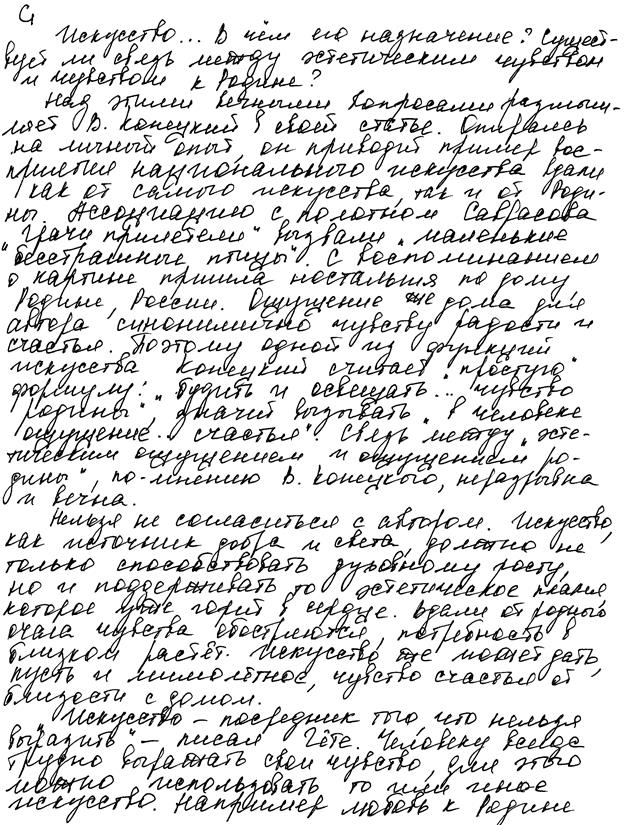 С1
Искусство... В чём его назначение? Сущест-
вует ли связь между эстетическим чувством
и чувством к Родине?
Над этими вечными вопросами размыш-
ляет В. Конецкий в своей статье. Опираясь
на личный опыт, он приводит пример вос-
приятия национального искусства вдали
как от самого искусства, так и от Роди-
ны. Ассоциацию с полотном Саврасова
"Грачи прилетели" вызвали "маленькие
бесстрашные птицы". С воспоминанием
о картине пришла ностальгия по дому,
Родине, России. Ощущение же дома для
автора синонимично чувству радости и
счастья. Поэтому одной из функций
искусства Конецкий считает "простую"
формулу: "будить и освещать... чувство
родины", значит вызывать "в человеке
ощущение... счастья". Связь между "эсте-
тическим ощущением и ощущением ро-
дины", по-мнению В. Конецкого, неразрывна
и вечна.
Нельзя не согласиться с автором. Искусство,
как источник добра и света, должно не
только способствовать духовному росту,
но и поддерживать то эстетическое пламя
которое уже горит в сердце. Вдали от родного
очага чувства обостряются, потребность в
близком растёт. Искусство же может дать,
пусть и мимолётное, чувство счастья от
близости с домом.
"Искусство – посредник того, что нельзя
выразить" – писал Гёте. Человеку всегда
трудно выражать свои чувства, для этого
можно использовать то или иное
искусство. Например любовь к Родине